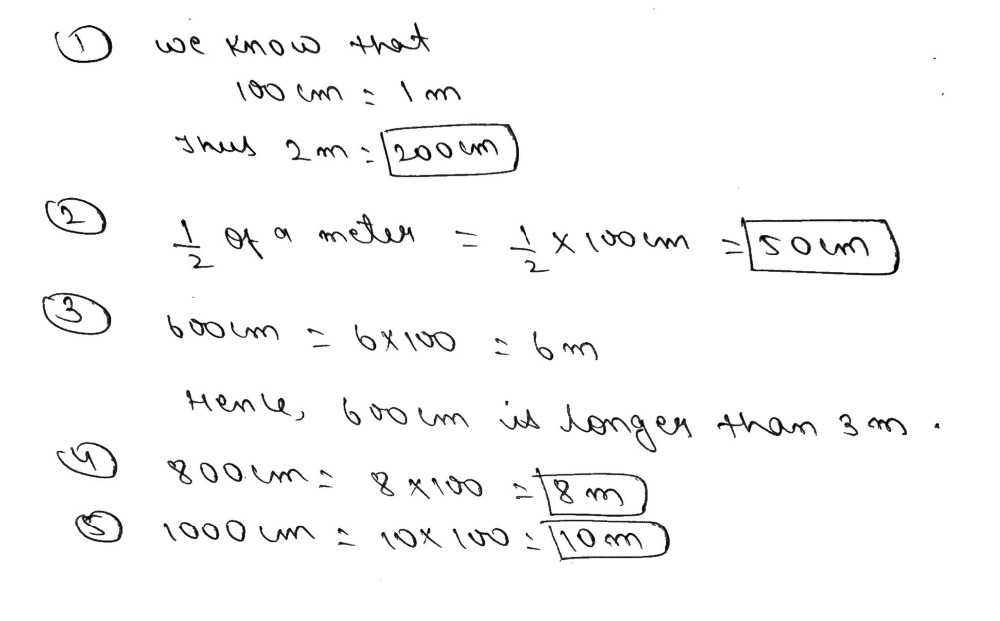 ① we know that
100 cm = 1 m
Thus 2 m = 200 cm
② 1/2 of a meter = 1/2 × 100 cm = 50 cm
③ 600 cm = 6×100 = 6 m
Hence, 600 cm is longer than 3 m.
④ 800 cm = 8 ×100 = 8 m
⑤ 1000 cm = 10× 100 = 10 m